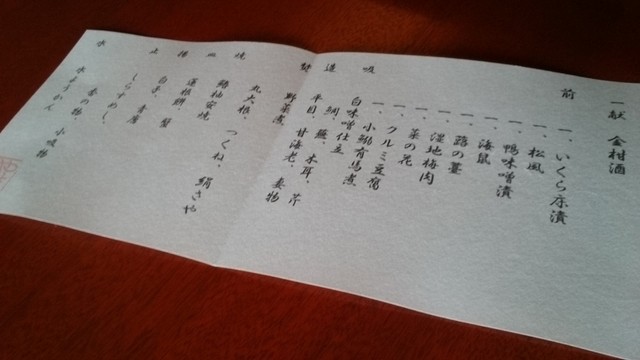 一献 金柑酒
前
一、いくら床漬
一、松風
一、鴨味噌漬
一、海鼠
一、蕗の薹
一、湿地梅肉
一、菜の花
一、クルミ豆腐
一、小鮎有馬煮
吸 白味噌仕立
造 鯛
平目、鮪、木耳、芹
甘海老、妻物
焚 野菜煮
丸大根、つくね、絹さや
焼 鰆柚安焼
皿 蓮根餅、蟹
揚 白子、青唐
止 しらすめし、
香の物、小吸物
水 水ようかん